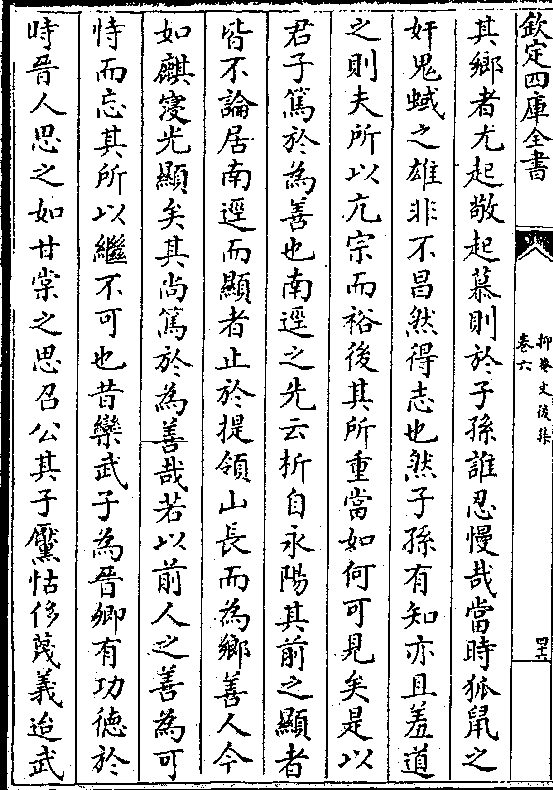 欽定四庫全書
抑菴文後集
卷六
四十六
其鄉者尤起敬起慕則於子孫誰忍慢哉當時狐鼠之
奸鬼蜮之雄非不昌然得志也然子孫有知亦且羞道
之則夫所以亢宗而裕後其所重當如何可見矣是以
君子篤於為善也南逕之先云析自永陽其前之顯者
皆不論居南逕而顯者止於提領山長而為鄉善人今
如麒寖光顯矣其尚篤於為善哉若以前人之善為可
恃而忘其所以繼不可也昔欒武子為晉卿有功德於
時晉人思之如甘棠之思召公其子黶怙侈蔑義迨武